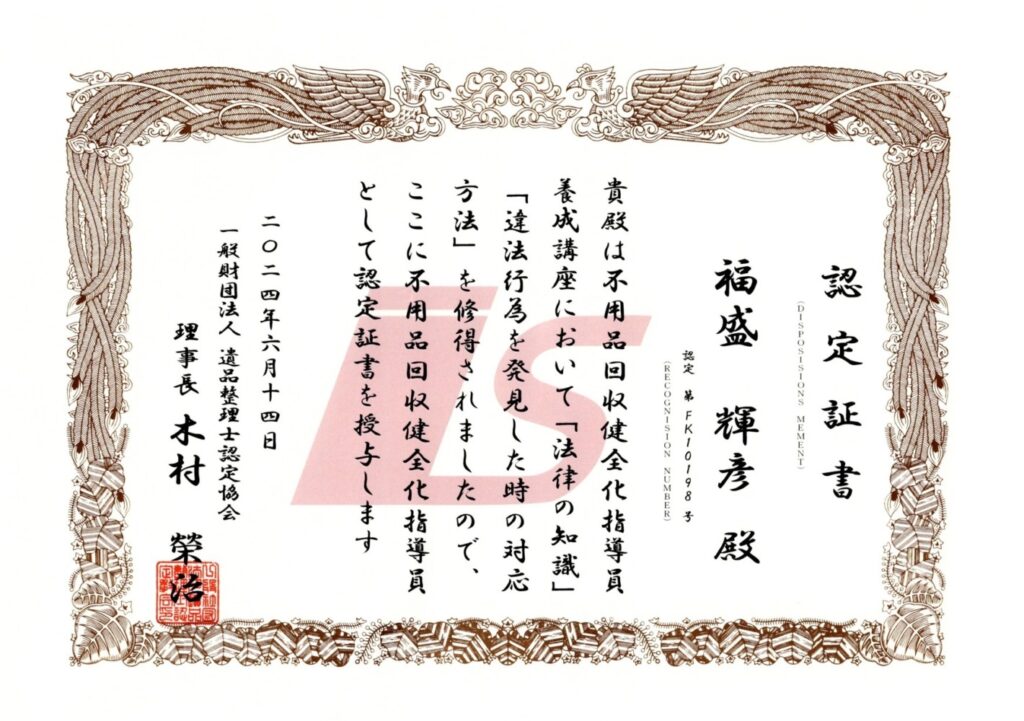 認定証書
(DISPOSISIONS MEMENT)
福盛 輝彦 殿
認定 第FK10198号
(RECOGNISION NUMBER)
貴殿は不用品回収健全化指導員
養成講座において「法律の知識」
「違法行為を発見した時の対応
方法」を修得されましたので、
ここに不用品回収健全化指導員
として認定証書を授与します
二〇二四年六月十四日
一般財団法人 遺品整理士認定協会
理事長 木村 榮治
is